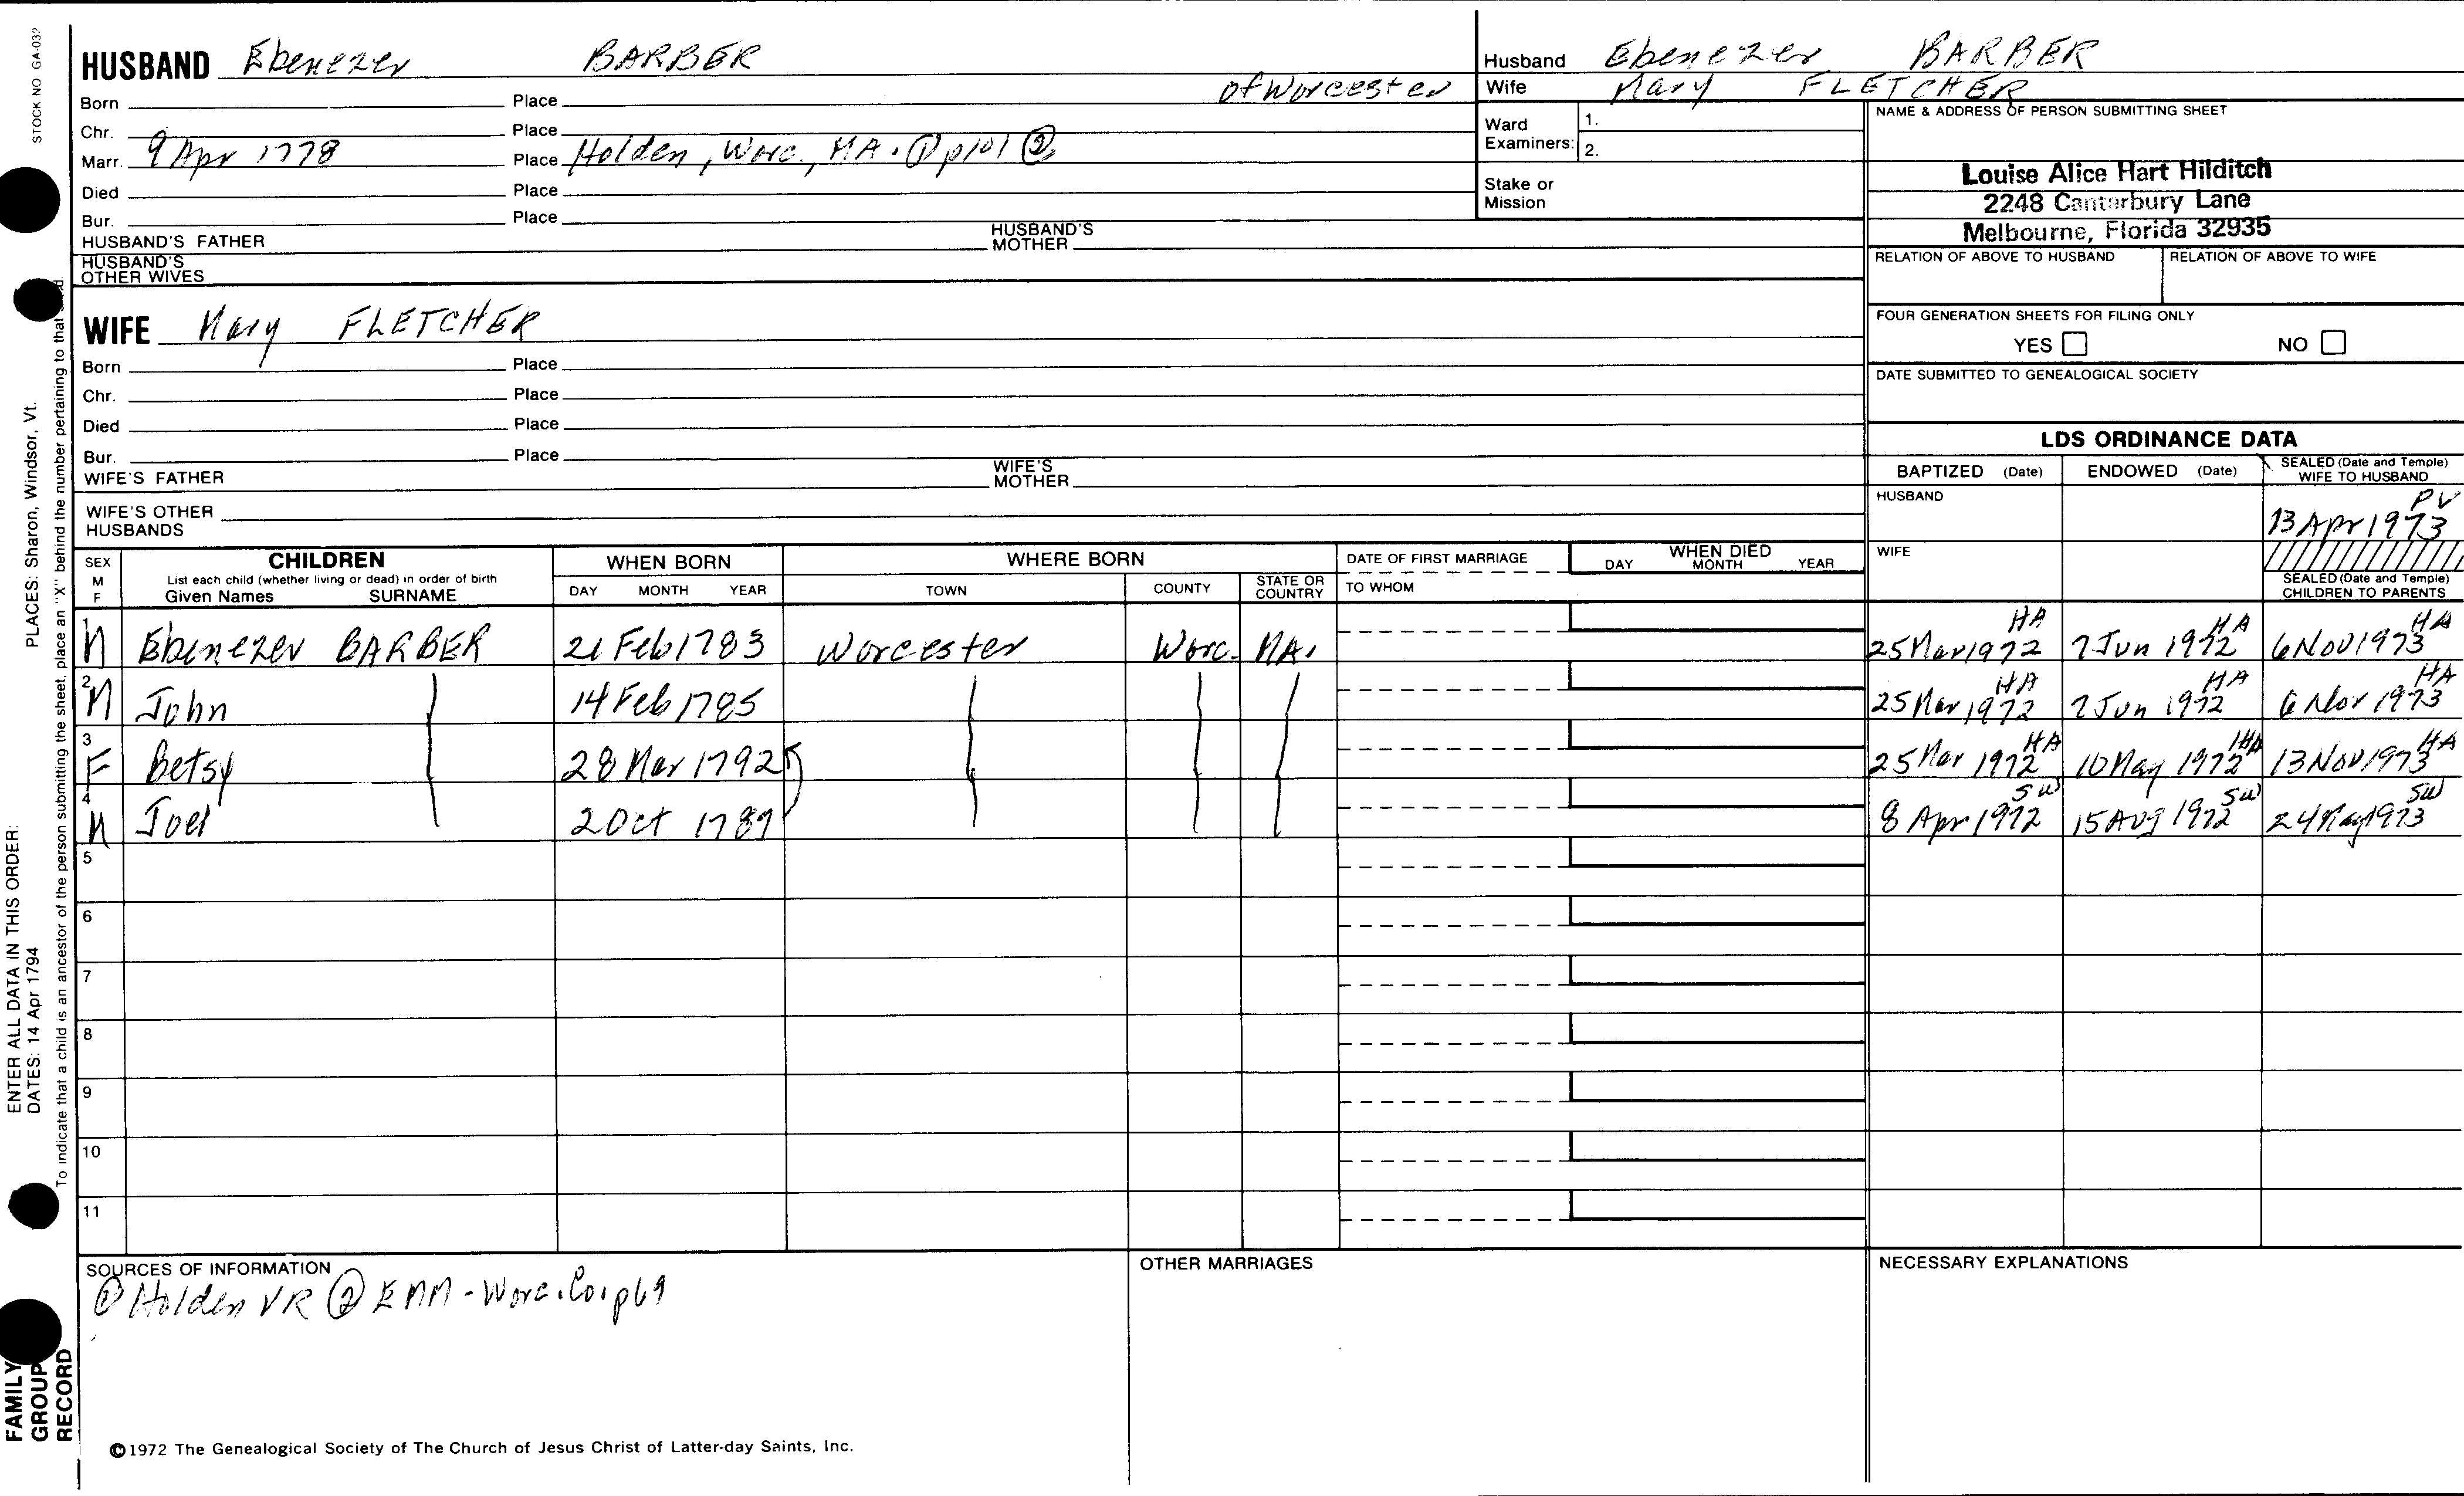 STOCK NO GA-032
PLACES: Sharon, Windsor, Vt.
ENTER ALL DATA IN THIS ORDER:
DATES: 14 Apr 1794
To indicate that a child is an ancestor of the person submitting the sheet, place an "X" behind the number pertaining to that
FAMILY
GROUP
RECORD
HUSBAND Ebenezer BARBER
of Worcester
Born Place
Chr. Place
Marr. 9 Apr 1778 Place Holden, Worc., MA. ① p101 ②
Died Place
Bur. Place
HUSBAND'S FATHER HUSBAND'S MOTHER
HUSBAND'S
OTHER WIVES
WIFE Mary FLETCHER
Born Place
Chr. Place
Died Place
Bur. Place
WIFE'S FATHER WIFE'S MOTHER
WIFE'S OTHER
HUSBANDS
Husband Ebenezer BARBER
Wife Mary FLETCHER
Ward
Examiners:
1.
2.
Stake or
Mission
NAME & ADDRESS OF PERSON SUBMITTING SHEET
Louise Alice Hart Hilditch
2248 Canterbury Lane
Melbourne, Florida 32935
RELATION OF ABOVE TO HUSBAND RELATION OF ABOVE TO WIFE
FOUR GENERATION SHEETS FOR FILING ONLY
YES NO
DATE SUBMITTED TO GENEALOGICAL SOCIETY
LDS ORDINANCE DATA
BAPTIZED (Date) ENDOWED (Date) SEALED (Date and Temple)
WIFE TO HUSBAND
HUSBAND PV
13 Apr 1973
WIFE
SEALED (Date and Temple)
CHILDREN TO PARENTS
SEX
M
F
CHILDREN
List each child (whether living or dead) in order of birth
Given Names SURNAME
WHEN BORN
DAY MONTH YEAR
WHERE BORN
TOWN COUNTY STATE OR COUNTRY
DATE OF FIRST MARRIAGE
TO WHOM
WHEN DIED
DAY MONTH YEAR
1 M Ebenezer BARBER 21 Feb 1783 Worcester Worc. MA. 25 Mar 1972 HA 7 Jun 1972 HA 6 Nov 1973 HA
2 M John 14 Feb 1785 25 Mar 1972 HA 7 Jun 1972 HA 6 Nov 1973 HA
3 F Betsy 28 Mar 1792 25 Mar 1972 HA 10 May 1972 HA 13 Nov 1973 HA
4 M Joel 2 Oct 1789 8 Apr 1972 SW 15 Aug 1972 SW 24 May 1973 SW
5
6
7
8
9
10
11
SOURCES OF INFORMATION
① Holden VR ② EMM - Worc. Co. p69
OTHER MARRIAGES
NECESSARY EXPLANATIONS
©1972 The Genealogical Society of The Church of Jesus Christ of Latter-day Saints, Inc.